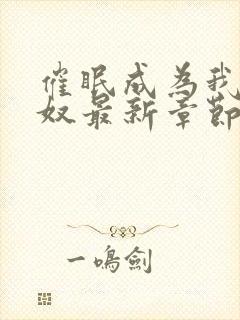 催眠成為我
奴最新章節
一鳴劍